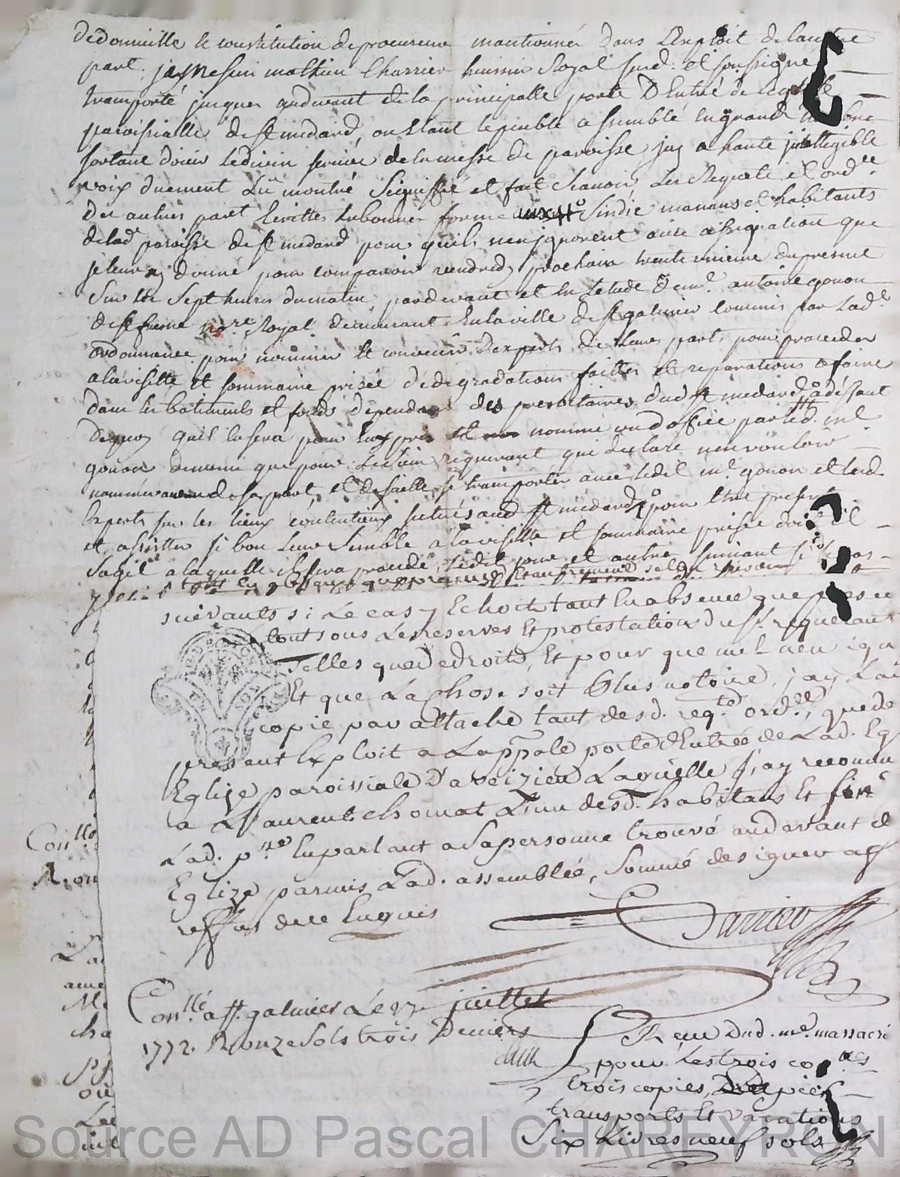 de donnuille le constitution de procureur mantionné dans L'exploit de lautre
part, Jay Mathieu Charrier huissier Royal susd. et soussigné
transporté jusques audevant de la principalle porte D'Entrée de L'eglise
paroissialle de st medard, ou étant le peuble assemblé en grand nombre
sortant d'ouir le divin service de la messe de paroisse, jay a haute jntelligible
voix duement Lu montré Signiffié et fait scavoir Les Requete et ordce
des autres parts Ecrittes En bonne forme aux sindic manans et habitants
de lad. paroisse de st medard pour quils n'en jgnorent avec assignation que
je leur ay donné pour comparoir vendredy prochain trente unieme du present
Sur les Sept heures du matin, pardevant et En Letude de me. antoine gonon
de st fresne nore Royal demeurant En la ville de st galmier commis par Lade
ordonnance pour nommer et convenir d'experts de leurs part, pour proceder
a la visitte et sommaire prisée des degradations faittes et reparations a faire
dans les batiments et fonds dépendant des presbitaires dud. st medard, a deffaut
de quoy quil En sera pour Eux pris et nommé un d'office par led. me
gonon de meme que pour Led. sieur requerant qui declare n'en vouloir
nommer de sa part, et d'Icelle se transporter avec led. me. gonon et lesd.
Experts sur les lieux contentieux situés aud. st medard, pour Etre present
et assister si bon Leur Semble a la visitte et sommaire prisée dont il
Sagit a laquelle il sera procedé, led. jour et autres suivant si
suivants si Le cas y Echoit tant En absence que presence
tout sous Les reserves Et protestations dud. sr. requerant
Telles que de droits, Et pour que nul n'en igno
Et que La chose soit Plus notoire, jay Lai
copie par attache tant desd. reqte ordce, que du
present Exploit a La pnpale porte d'Entrée de Lad. Eg
Eglize paroissiale D'aveizieu Laquelle j'ay reconnu
a Laurent chomat L'un desd. habitans Et
Lad. pse En parlant a Sa personne trouvé audevant de
Eglize parmis Lad. assemblée, Sommé de signer a
reffusé de ce Enquis
Charrier
Conllé a st. galmier Le 27 juillet
1772. R onze sols trois Deniers
Reçu Dud. me. massacri
pour Les trois
trois copies,
transports Et vacations
Six Livres neuf sols
Conllé
R. on
La
ame
Me
cha
ou
Le
Source AD Pascal CHAREYRON